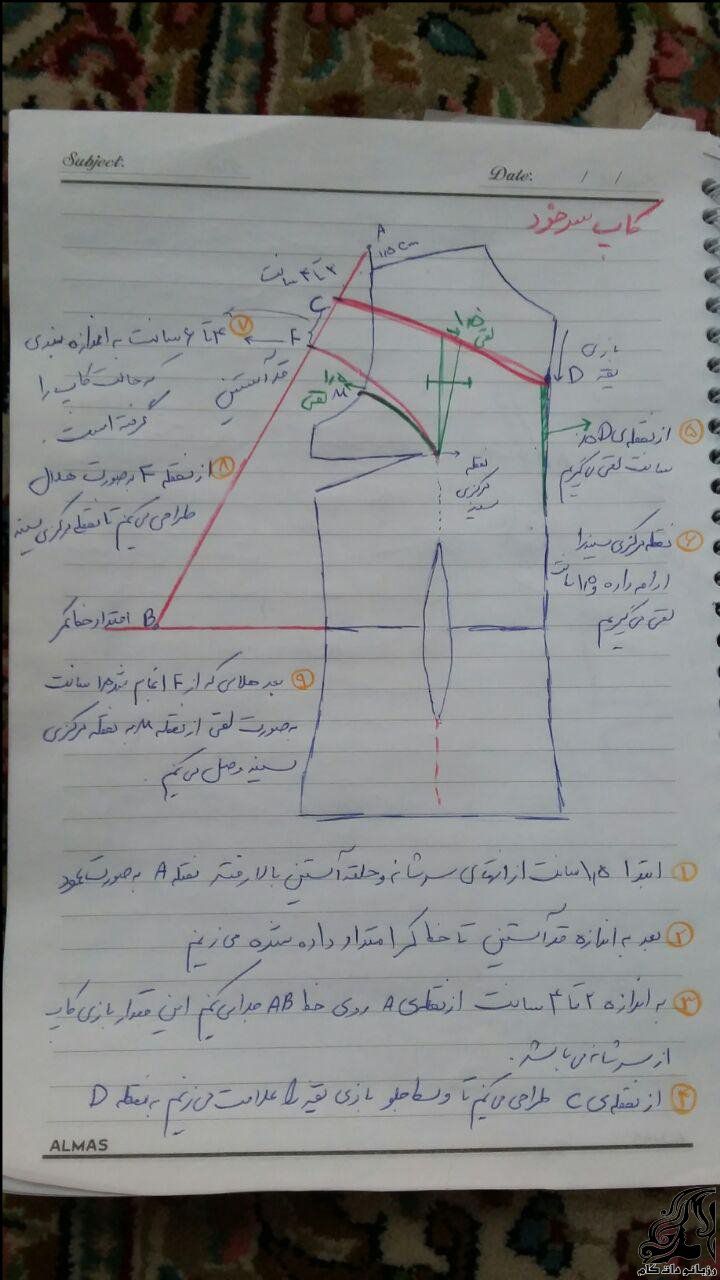 Subject:
Date: / /
کاپ سرخود
A
۱/۵ cm
۲ تا ۴ سانت
C
F
۷ ۴ تا ۶ سانت به اندازه بندی
که حالت کاپ را
گرفته است.
قد آستین
بازی
یقه
D
۱/۵
لقی
M
۱/۵
لقی
نقطه
مرکزی
سینه
۵ از نقطه‌ی D ۱/۵
سانت لقی می‌گیریم
۸ از نقطه F به صورت هلال
طراحی می‌کنیم تا نقطه مرکزی سینه
۶ نقطه مرکزی سینه را
ادامه داده و ۱/۵ سانت
لقی می‌گیریم
B امتداد خط کمر
۹ بعد هلالی که از F انجام شد ۱/۵ سانت
به صورت لقی از نقطه M به نقطه مرکزی
سینه وصل می‌کنیم.
۱ ابتدا ۱/۵ سانت از انتهای سرشانه و حلقه آستین بالا رفته نقطه A به صورت عمود
۲ بعد به اندازه قد آستین تا خط کمر امتداد داده شده می‌زنیم
۳ به اندازه ۲ تا ۴ سانت از نقطه‌ی A روی خط AB جدا می‌کنیم این مقدار بازی کاپ
از سرشانه می‌باشد.
۴ از نقطه‌ی C طراحی می‌کنیم تا وسط جلو بازی یقه را علامت می‌زنیم به نقطه D
ALMAS
رزبانو دات کام